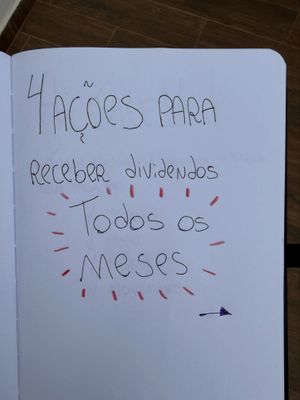 4 AÇÕES PARA
RECEBER dividendos
Todos os
meses